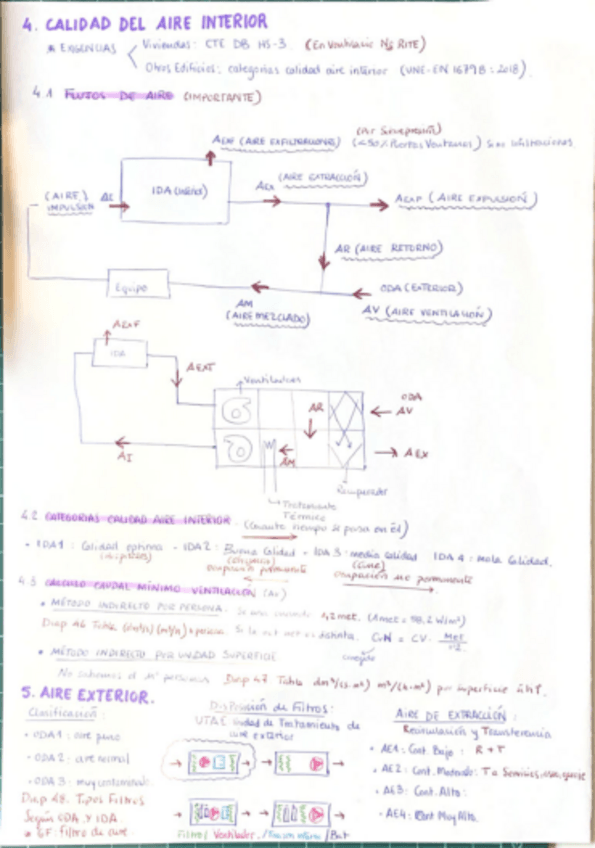 4. CALIDAD DEL AIRE INTERIOR
* EXIGENCIAS
Viviendas: CTE DB HS-3. (En Ventilación No RITE)
Otros Edificios: categorías calidad aire interior (UNE-EN 16798:2018).
4.1 FLUJOS DE AIRE (IMPORTANTE)
(Por Sobrepresión)
AEXF (AIRE EXFILTRACIONES) Puertas Ventanas) Si no infiltraciones
IDA
(AIRE EXTRACCIÓN)
AEX
(AIRE) IMPULSIÓN
AEXP (AIRE EXPULSIÓN)
AR (AIRE RETORNO)
Equipo
ODA (EXTERIOR)
AM
(AIRE MEZCLADO)
AV (AIRE VENTILACIÓN)
AEXF
IDA
AEXT
Ventiladores
ODA
AR
AV
AI
AM
AEX
Recuperador
Tratamiento
Térmico
4.2 CATEGORIAS CALIDAD AIRE INTERIOR. (Cuanto tiempo se pasa en él)
• IDA1: Calidad optima - IDA2: Buena Calidad - IDA3: media Calidad IDA4: mala Calidad.
(hospitales) (Oficinas) (Cine)
Ocupación permanente Ocupación no permanente
4.3 CALCULO CAUDAL MINIMO VENTILACIÓN (AV)
• MÉTODO INDIRECTO POR PERSONA. 1,2 met. (1 met = 58,2 W/m²)
Diap 46 Tabla persona. Si la act met es distinta. CVN = CV · Met / 1.2
• MÉTODO INDIRECTO POR UNIDAD SUPERFICIE
corregido
No sabemos el nº personas Diap 47 Tabla por superficie útil.
5. AIRE EXTERIOR.
Clasificación:
Disposición de Filtros:
AIRE DE EXTRACCIÓN:
UTAE unidad de Tratamiento de
aire exterior
Recirculación y Transferencia
• ODA1: aire puro
• AE1: Cont. Bajo: R+T
• ODA2: aire normal
• AE2: Cont. Moderado: T a Servicios, aseo, garaje
• ODA3: muy contaminado
• AE3: Cont. Alto:
Diap 48. Tipos Filtros
Según ODA Y IDA
• AE4: Cont Muy Alto.
• GF: filtro de
Filtros Ventilador. / / Bat